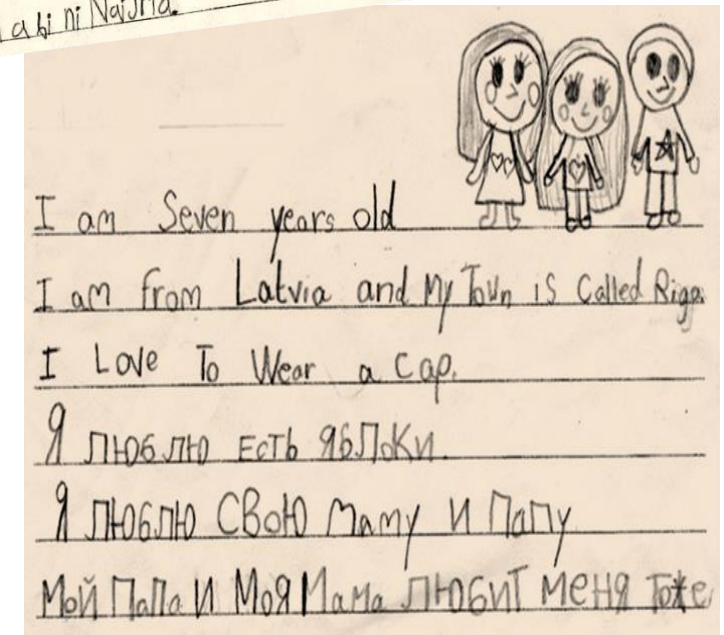 a bi ni Naijiria.
I am Seven years old
I am from Latvia and My Town is Called Riga.
I Love To Wear a Cap.
Я люблю есть яблоки.
Я люблю свою маму и папу
Мой папа и моя мама любит меня тоже